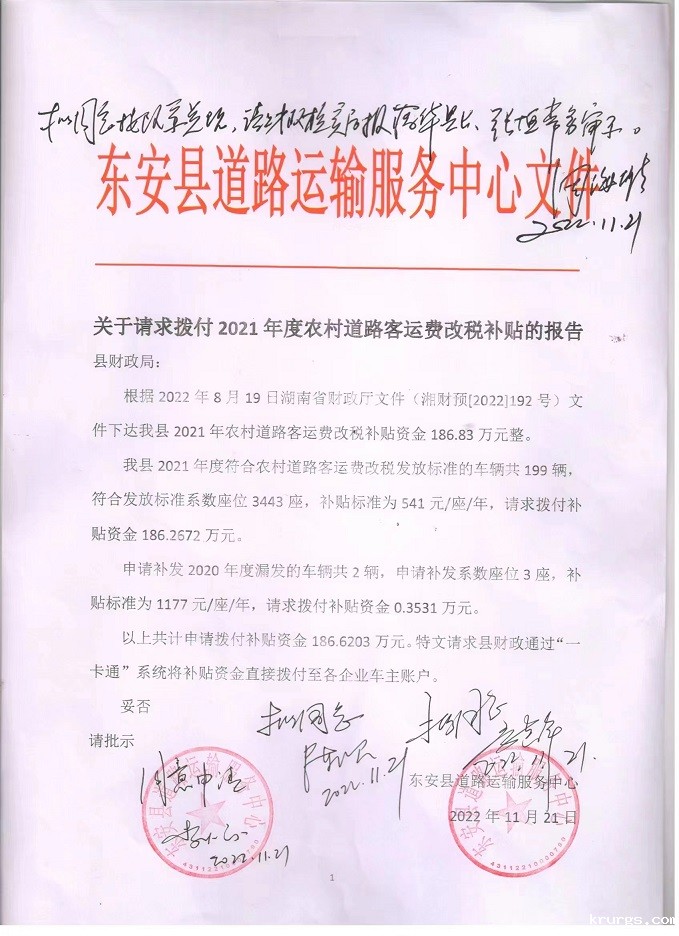 东安县道路运输服务中心文件
2022.11.21
关于请求拨付 2021 年度农村道路客运费改税补贴的报告
县财政局：
根据 2022 年 8 月 19 日湖南省财政厅文件（湘财预[2022]192 号）文
件下达我县 2021 年农村道路客运费改税补贴资金 186.83 万元整。
我县 2021 年度符合农村道路客运费改税发放标准的车辆共 199 辆，
符合发放标准系数座位 3443 座，补贴标准为 541 元/座/年，请求拨付补
贴资金 186.2672 万元。
申请补发 2020 年度漏发的车辆共 2 辆，申请补发系数座位 3 座，补
贴标准为 1177 元/座/年，请求拨付补贴资金 0.3531 万元。
以上共计申请拨付补贴资金 186.6203 万元。特文请求县财政通过“一
卡通”系统将补贴资金直接拨付至各企业车主账户。
妥否
请批示
拟同意
2022.11.21
拟同意
2022.11.21
同意申请
2022.11.21
东安县道路运输服务中心
2022 年 11 月 21 日
东安县道路运输服务中心
东安县道路运输服务中心
1
krurgs.com